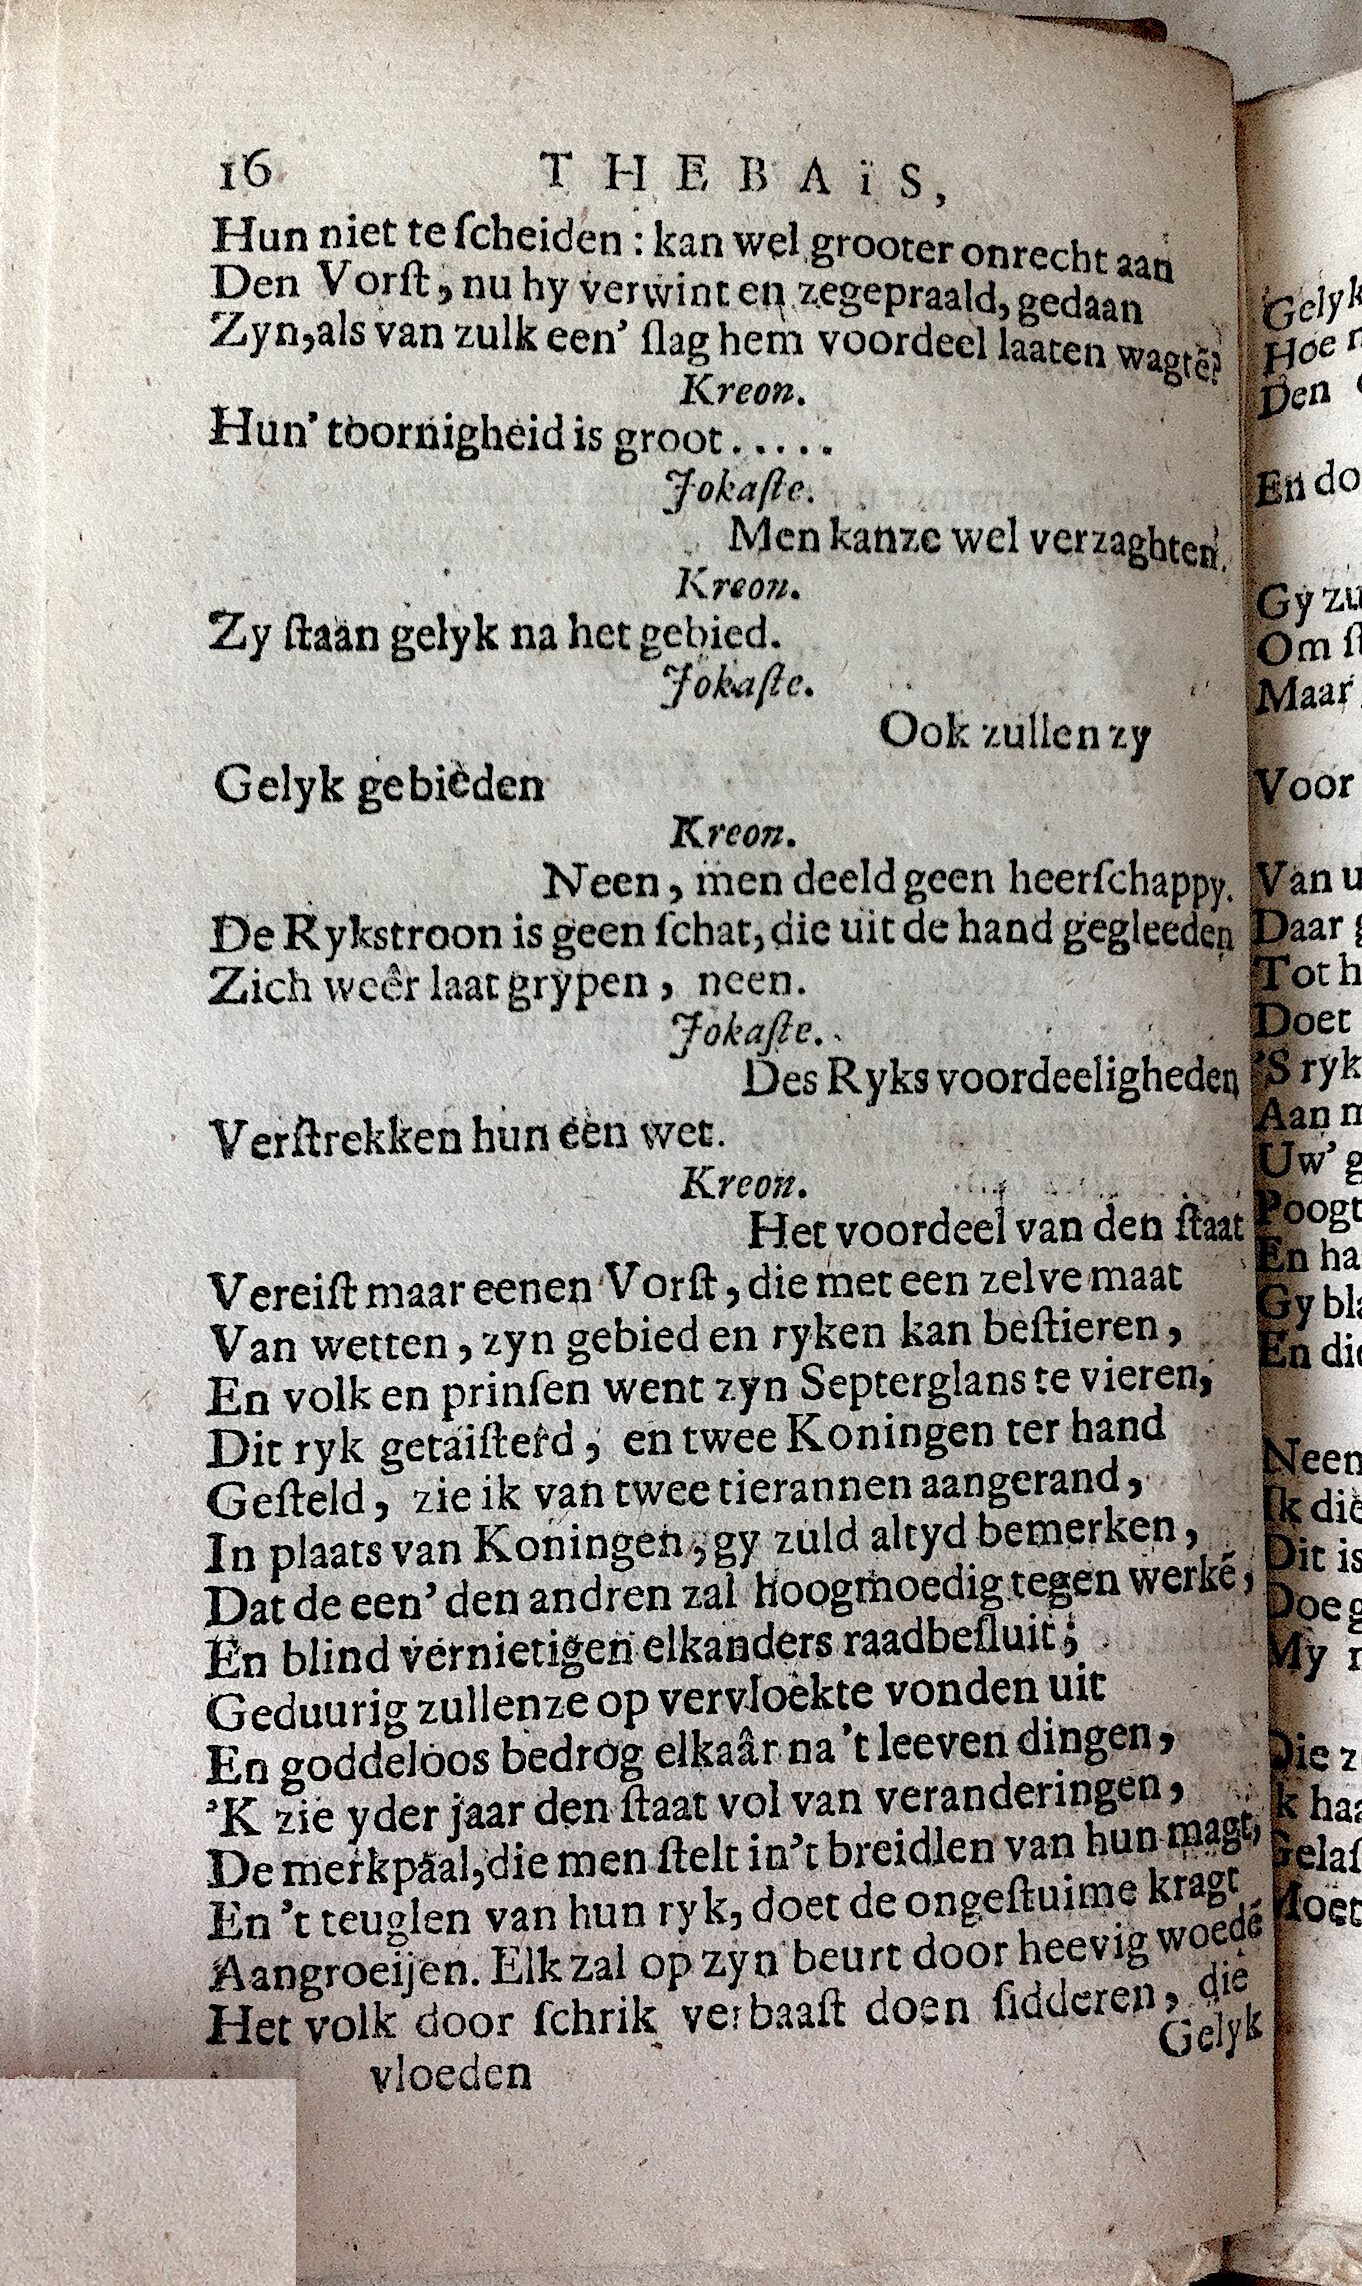 16 THEBAïS,
Hun niet te ſcheiden : kan wel grooter onrecht aan
Den Vorſt, nu hy verwint en zegepraald, gedaan
Zyn, als van zulk een' ſlag hem voordeel laaten wagtẽ?
Kreon.
Hun' toornigheid is groot.....
Jokaſte.
Men kanze wel verzaghten.
Kreon.
Zy ſtaan gelyk na het gebied.
Jokaſte.
Ook zullen zy
Gelyk gebieden
Kreon.
Neen, men deeld geen heerſchappy.
De Rykstroon is geen ſchat, die uit de hand gegleeden
Zich weêr laat grypen, neen.
Jokaſte.
Des Ryks voordeeligheden
Verſtrekken hun een wet.
Kreon.
Het voordeel van den ſtaat
Vereiſt maar eenen Vorſt, die met een zelve maat
Van wetten, zyn gebied en ryken kan beſtieren,
En volk en prinſen went zyn Septerglans te vieren,
Dit ryk getaiſterd, en twee Koningen ter hand
Geſteld, zie ik van twee tierannen aangerand,
In plaats van Koningen, gy zuld altyd bemerken,
Dat de een' den andren zal hoogmoedig tegen werkẽ,
En blind vernietigen elkanders raadbeſluit;
Geduurig zullenze op vervloekte vonden uit
En goddeloos bedrog elkaâr na 't leeven dingen,
'K zie yder jaar den ſtaat vol van veranderingen,
De merkpaal, die men ſtelt in 't breidlen van hun magt,
En 't teuglen van hun ryk, doet de ongeſtuime kragt
Aangroeijen. Elk zal op zyn beurt door heevig woedẽ
Het volk door ſchrik verbaaſt doen ſidderen, die
vloeden
Gelyk
Gelyk
Hoe
Den
En do
Gy zu
Om ſt
Maar
Voor
Van u
Daar g
Tot h
Doet
'S ryk
Aan m
Uw' g
Poogt
En ha
Gy bla
En die
Neen
Ik die
Dit is
Doe g
My
Die z
Ik haa
Gelaſ
Moet